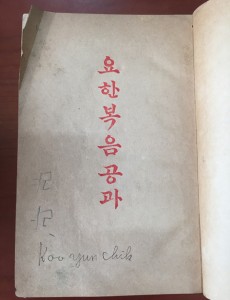 요한복음공과
Koo yun chil